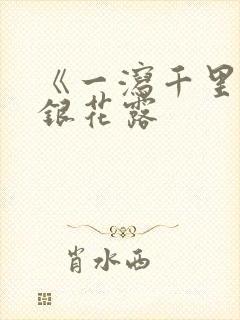 《一瀉千里
銀花露
肖水西